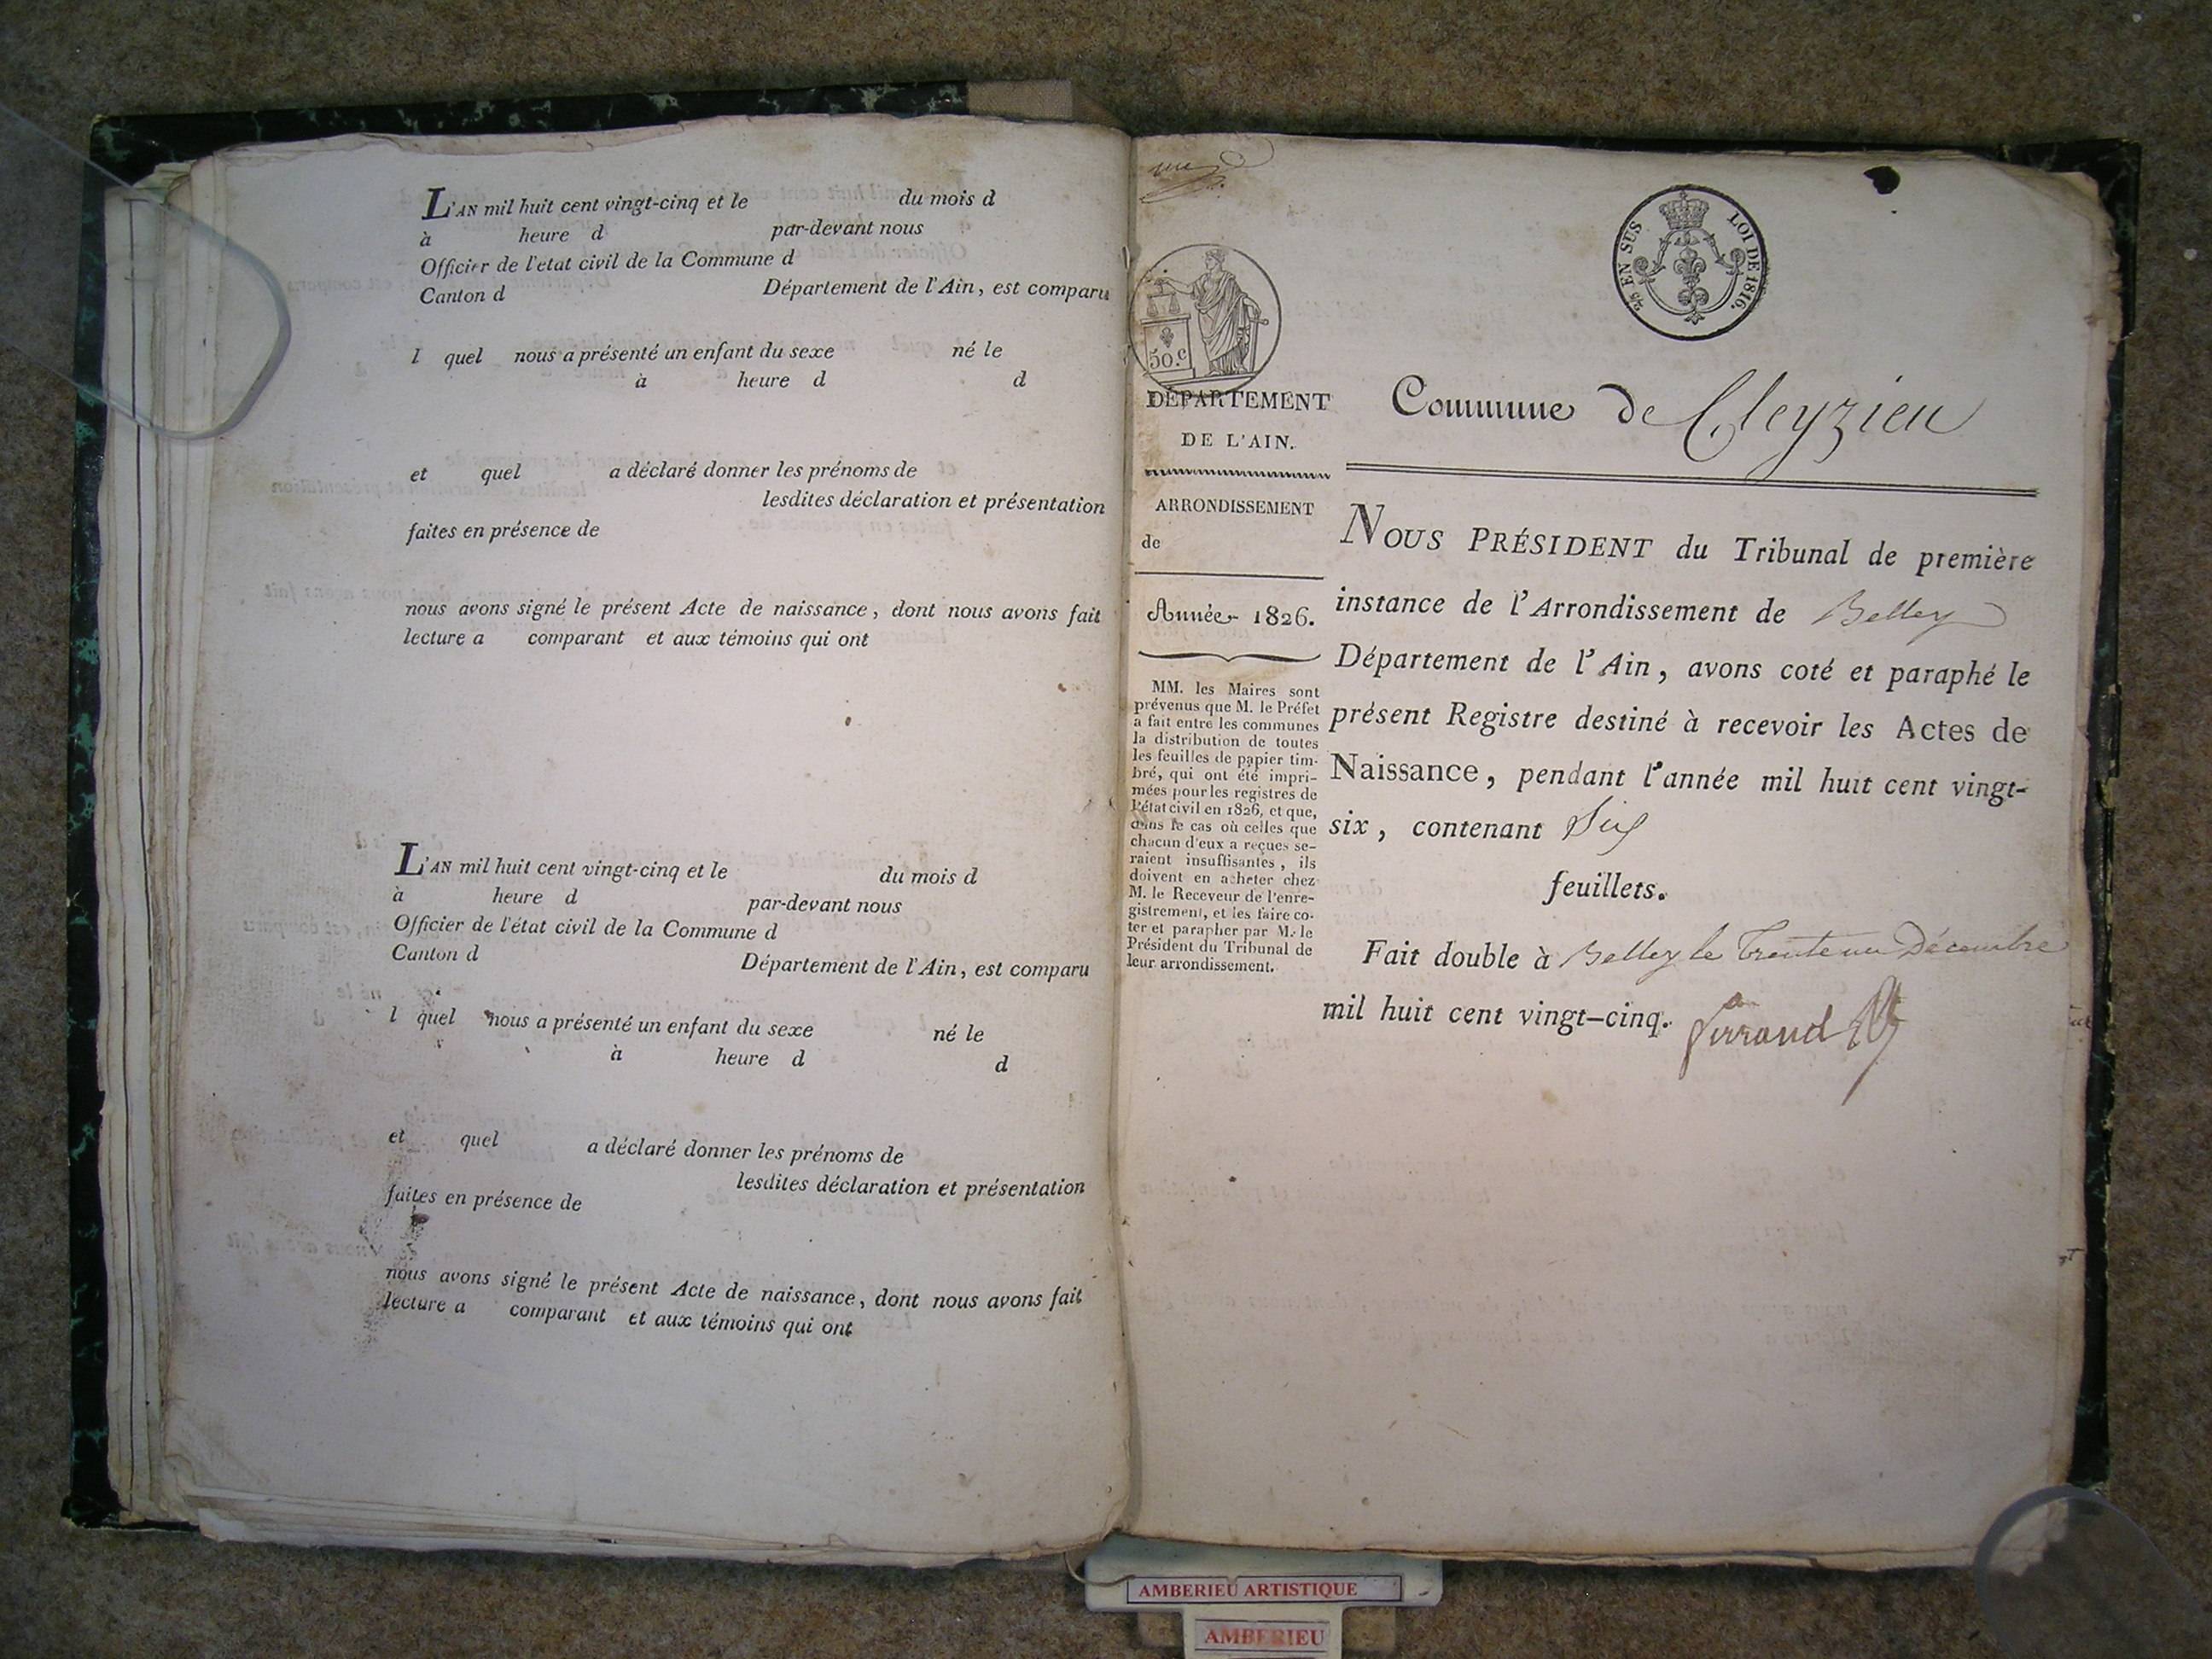 L'AN mil huit cent vingt-cinq et le du mois d
à heure d par-devant nous
Officier de l'etat civil de la Commune d
Canton d Département de l'Ain, est comparu
l quel nous a présenté un enfant du sexe né le
à heure d d
et quel a déclaré donner les prénoms de
lesdites déclaration et présentation
faites en présence de
nous avons signé le présent Acte de naissance, dont nous avons fait
lecture a comparant et aux témoins qui ont
L'AN mil huit cent vingt-cinq et le du mois d
à heure d par-devant nous
Officier de l'état civil de la Commune d
Canton d Département de l'Ain, est comparu
l quel nous a présenté un enfant du sexe né le
à heure d d
et quel a déclaré donner les prénoms de
lesdites déclaration et présentation
faites en présence de
nous avons signé le présent Acte de naissance, dont nous avons fait
lecture a comparant et aux témoins qui ont
EN SUS LOI DE 1816.
50.c
DÉPARTEMENT
DE L'AIN.
ARRONDISSEMENT
de
Année 1826.
MM. les Maires sont
prévenus que M. le Préfet
a fait entre les communes
la distribution de toutes
les feuilles de papier tim-
bré, qui ont été impri-
mées pour les registres de
l'état civil en 1826, et que,
dans le cas où celles que
chacun d'eux a reçues se-
raient insuffisantes, ils
doivent en acheter chez
M. le Receveur de l'enre-
gistrement, et les faire co-
ter et parapher par M. le
Président du Tribunal de
leur arrondissement.
Commune de Cleyzieu
NOUS PRÉSIDENT du Tribunal de première
instance de l'Arrondissement de Belley
Département de l'Ain, avons coté et paraphé le
présent Registre destiné à recevoir les Actes de
Naissance, pendant l'année mil huit cent vingt-
six, contenant Six
feuillets.
Fait double à Belley le Trente un Décembre
mil huit cent vingt-cinq.
AMBERIEU ARTISTIQUE
AMBERIEU